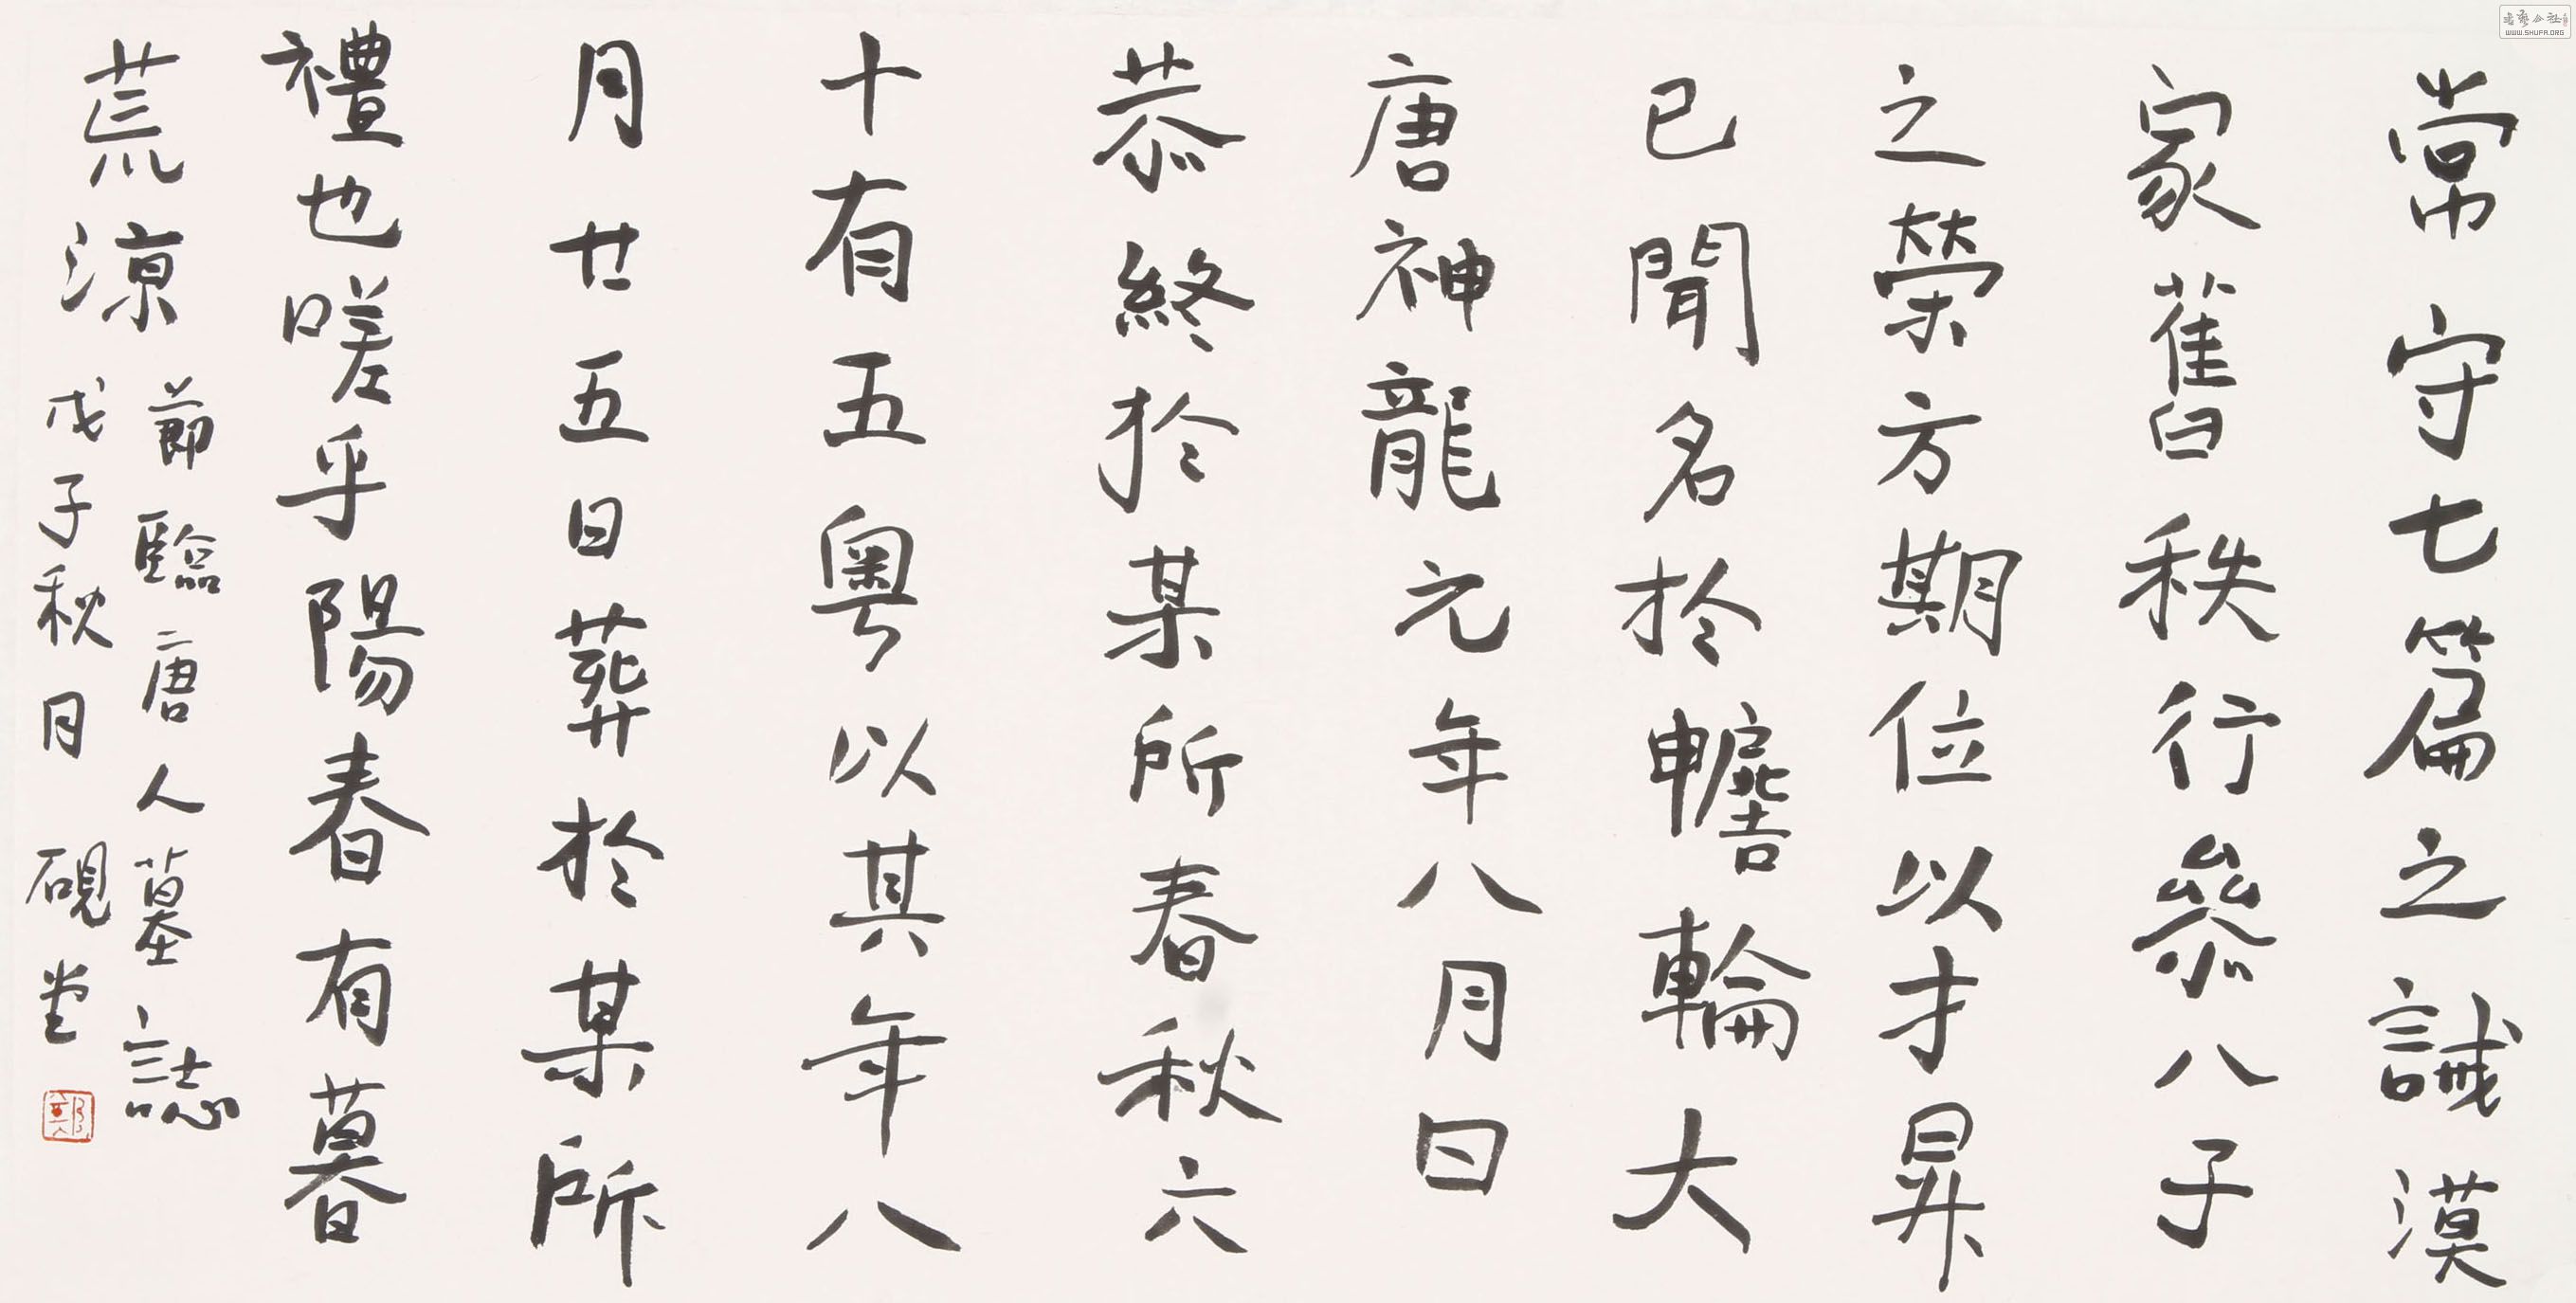 常守七篇之誡漠
家舊秩行參八子
之榮方期位以才昇
已聞名於轤輪大
唐神龍元年八月日
恭終於某所春秋六
十有五粵以其年八
月廿五日葬於某所
禮也嗟乎陽春有暮
荒涼
節臨唐人墓誌
戊子秋月 硯堂
鄭
WWW.SHUFA.ORG